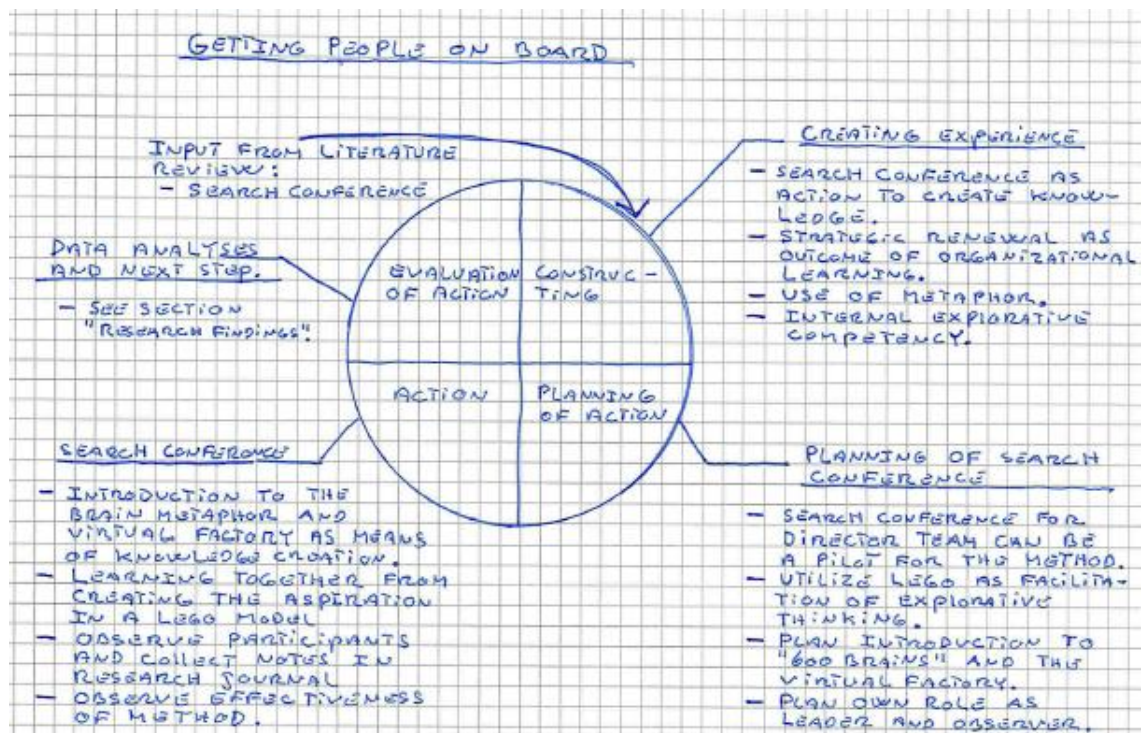 GETTING PEOPLE ON BOARD
INPUT FROM LITERATURE
REVIEW:
- SEARCH CONFERENCE
DATA ANALYSES
AND NEXT STEP.
- SEE SECTION
"RESEARCH FINDINGS".
EVALUATION
OF ACTION
CONSTRUC-
TING
ACTION
PLANNING
OF ACTION
CREATING EXPERIENCE
- SEARCH CONFERENCE AS
ACTION TO CREATE KNOW-
LEDGE.
- STRATEGIC RENEWAL AS
OUTCOME OF ORGANIZATIONAL
LEARNING.
- USE OF METAPHOR.
- INTERNAL EXPLORATIVE
COMPETENCY.
SEARCH CONFERENCE
- INTRODUCTION TO THE
BRAIN METAPHOR AND
VIRTUAL FACTORY AS MEANS
OF KNOWLEDGE CREATION.
- LEARNING TOGETHER FROM
CREATING THE ASPIRATION
IN A LEGO MODEL
- OBSERVE PARTICIPANTS
AND COLLECT NOTES IN
RESEARCH JOURNAL
- OBSERVE EFFECTIVENESS
OF METHOD.
PLANNING OF SEARCH
CONFERENCE
- SEARCH CONFERENCE FOR
DIRECTOR TEAM CAN BE
A PILOT FOR THE METHOD.
- UTILIZE LEGO AS FACILITA-
TION OF EXPLORATIVE
THINKING.
- PLAN INTRODUCTION TO
"600 BRAINS" AND THE
VIRTUAL FACTORY.
- PLAN OWN ROLE AS
LEADER AND OBSERVER.